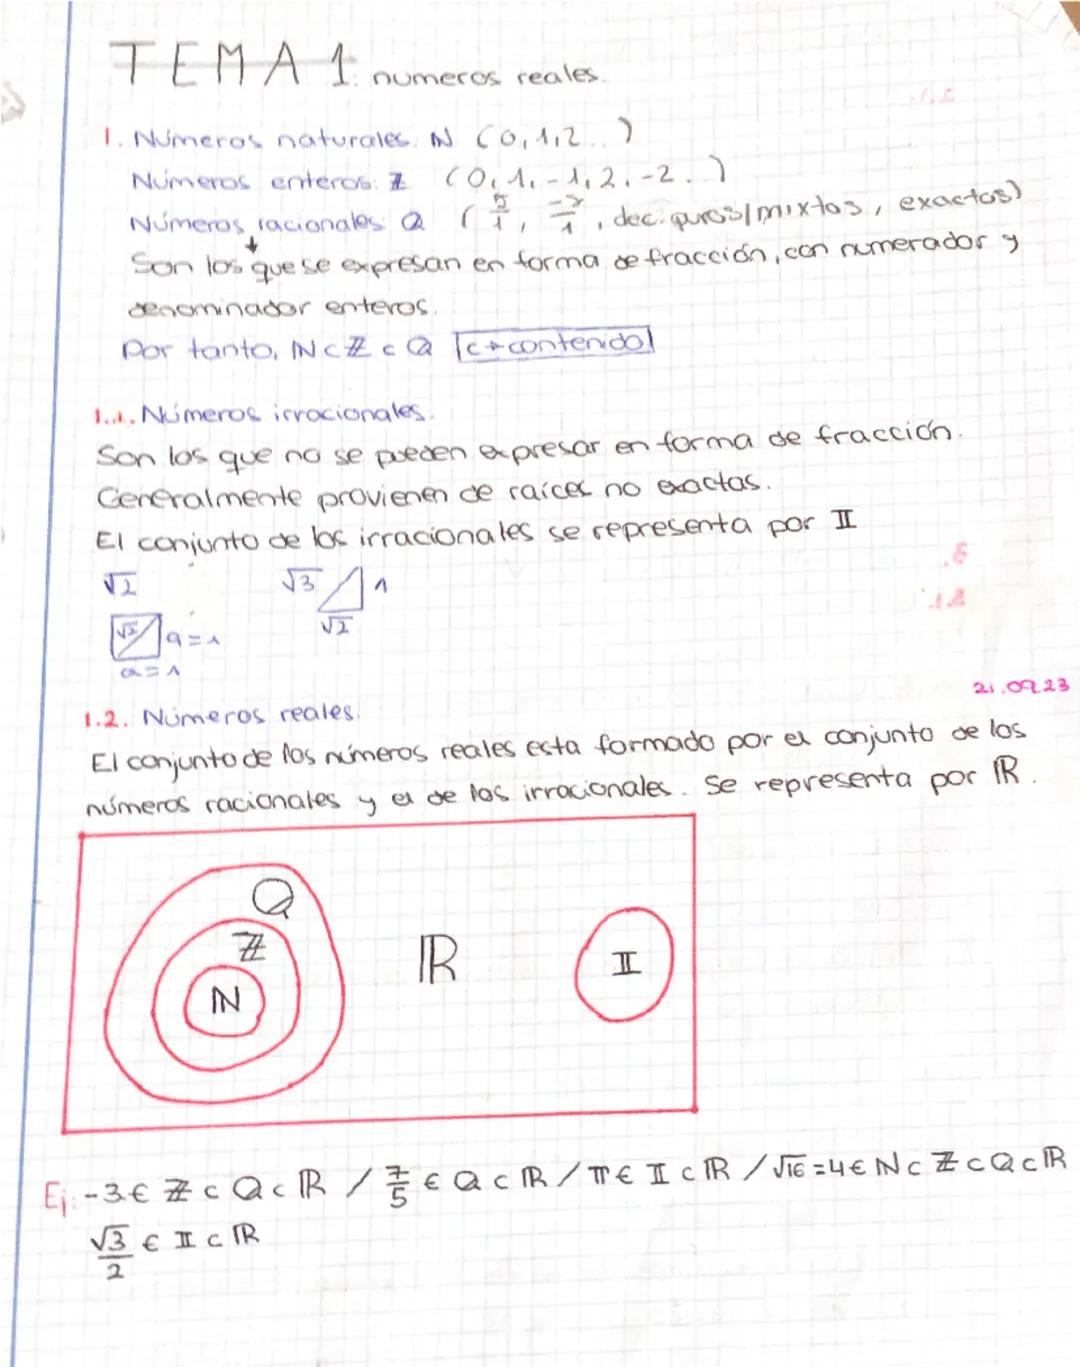 TEMA 1: numeros reales.
1. Números naturales: ℕ (0,1,2...)
Números enteros: ℤ (0,1,-1,2,-2..)
Números racionales: ℚ (5/1, /1, dec. puros/mixtos, exactos)
↓
Son los que se expresan en forma de fracción, con numerador y
denominador enteros.
Por tanto, ℕ⊂ℤ⊂ℚ [⊂→contenido]
1.1. Números irracionales.
Son los que no se pueden expresar en forma de fracción.
Generalmente provienen de raíces no exactas.
El conjunto de los irracionales se representa por 𝕀
√2 √3 1
√2 a=1 √2
a=1
21.09.23
1.2. Números reales.
El conjunto de los números reales esta formado por el conjunto de los
números racionales y el de los irracionales. Se representa por ℝ.
ℚ
ℤ
ℕ ℝ 𝕀
Ej: -3∈ ℤ⊂ℚ⊂ℝ / 7/5 ∈ ℚ⊂ℝ / π∈ 𝕀⊂ℝ / √16=4∈ℕ⊂ℤ⊂ℚ⊂ℝ
√3/2 ∈ 𝕀⊂ℝ